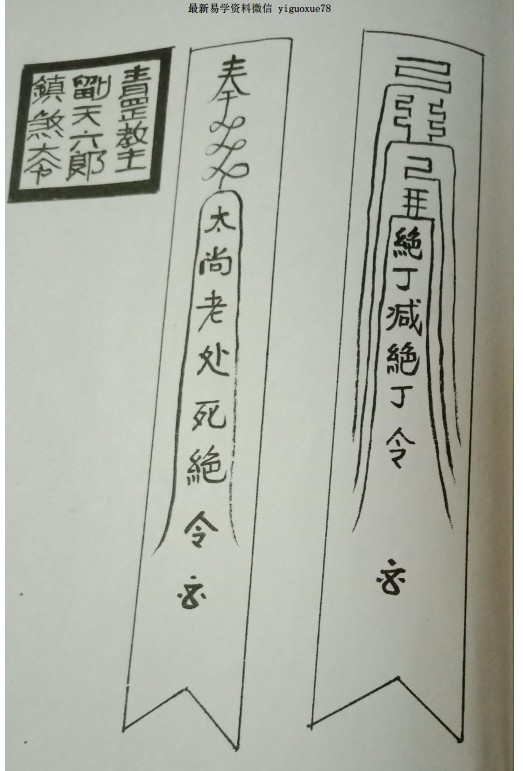 最新易学资料微信 yiguoxue78
青罡教主
劉天六郎
鎮煞大令
奉
太尚老处死絕令
絕丁减絕丁令